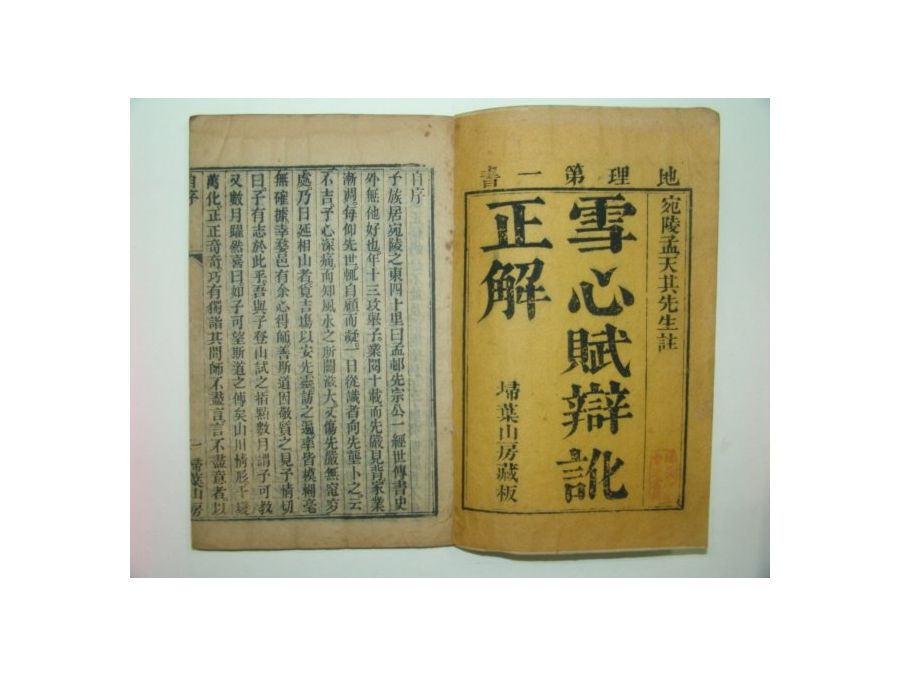 地理第一書
宛陵孟天其先生註
雪心賦辯訛
正解
埽葉山房藏板
自序
子族居宛陵之東四十里曰孟邨先宗公一經世傳書史
外無他好也年十三攻舉子業閱十載而先嚴見背家業
漸凋每仰先世輒自顧而凝一日從識者向先壟卜之云
不吉予心深痛而知風水之所關最大又傷先嚴無窀穸
處乃日延相山者覓吉壤以安先靈訪之遍率皆模糊毫
無確據幸婺邑有余心得師善斯道因敬質之見予情切
曰子有志於此乎吾與子登山試之指點數月謂子可教
又數月躍然喜曰如子可望斯道之傳矣山川情形千變
萬化正正奇奇巧有獨詣其間師不盡言言不盡意者以
自序
一
埽葉山房